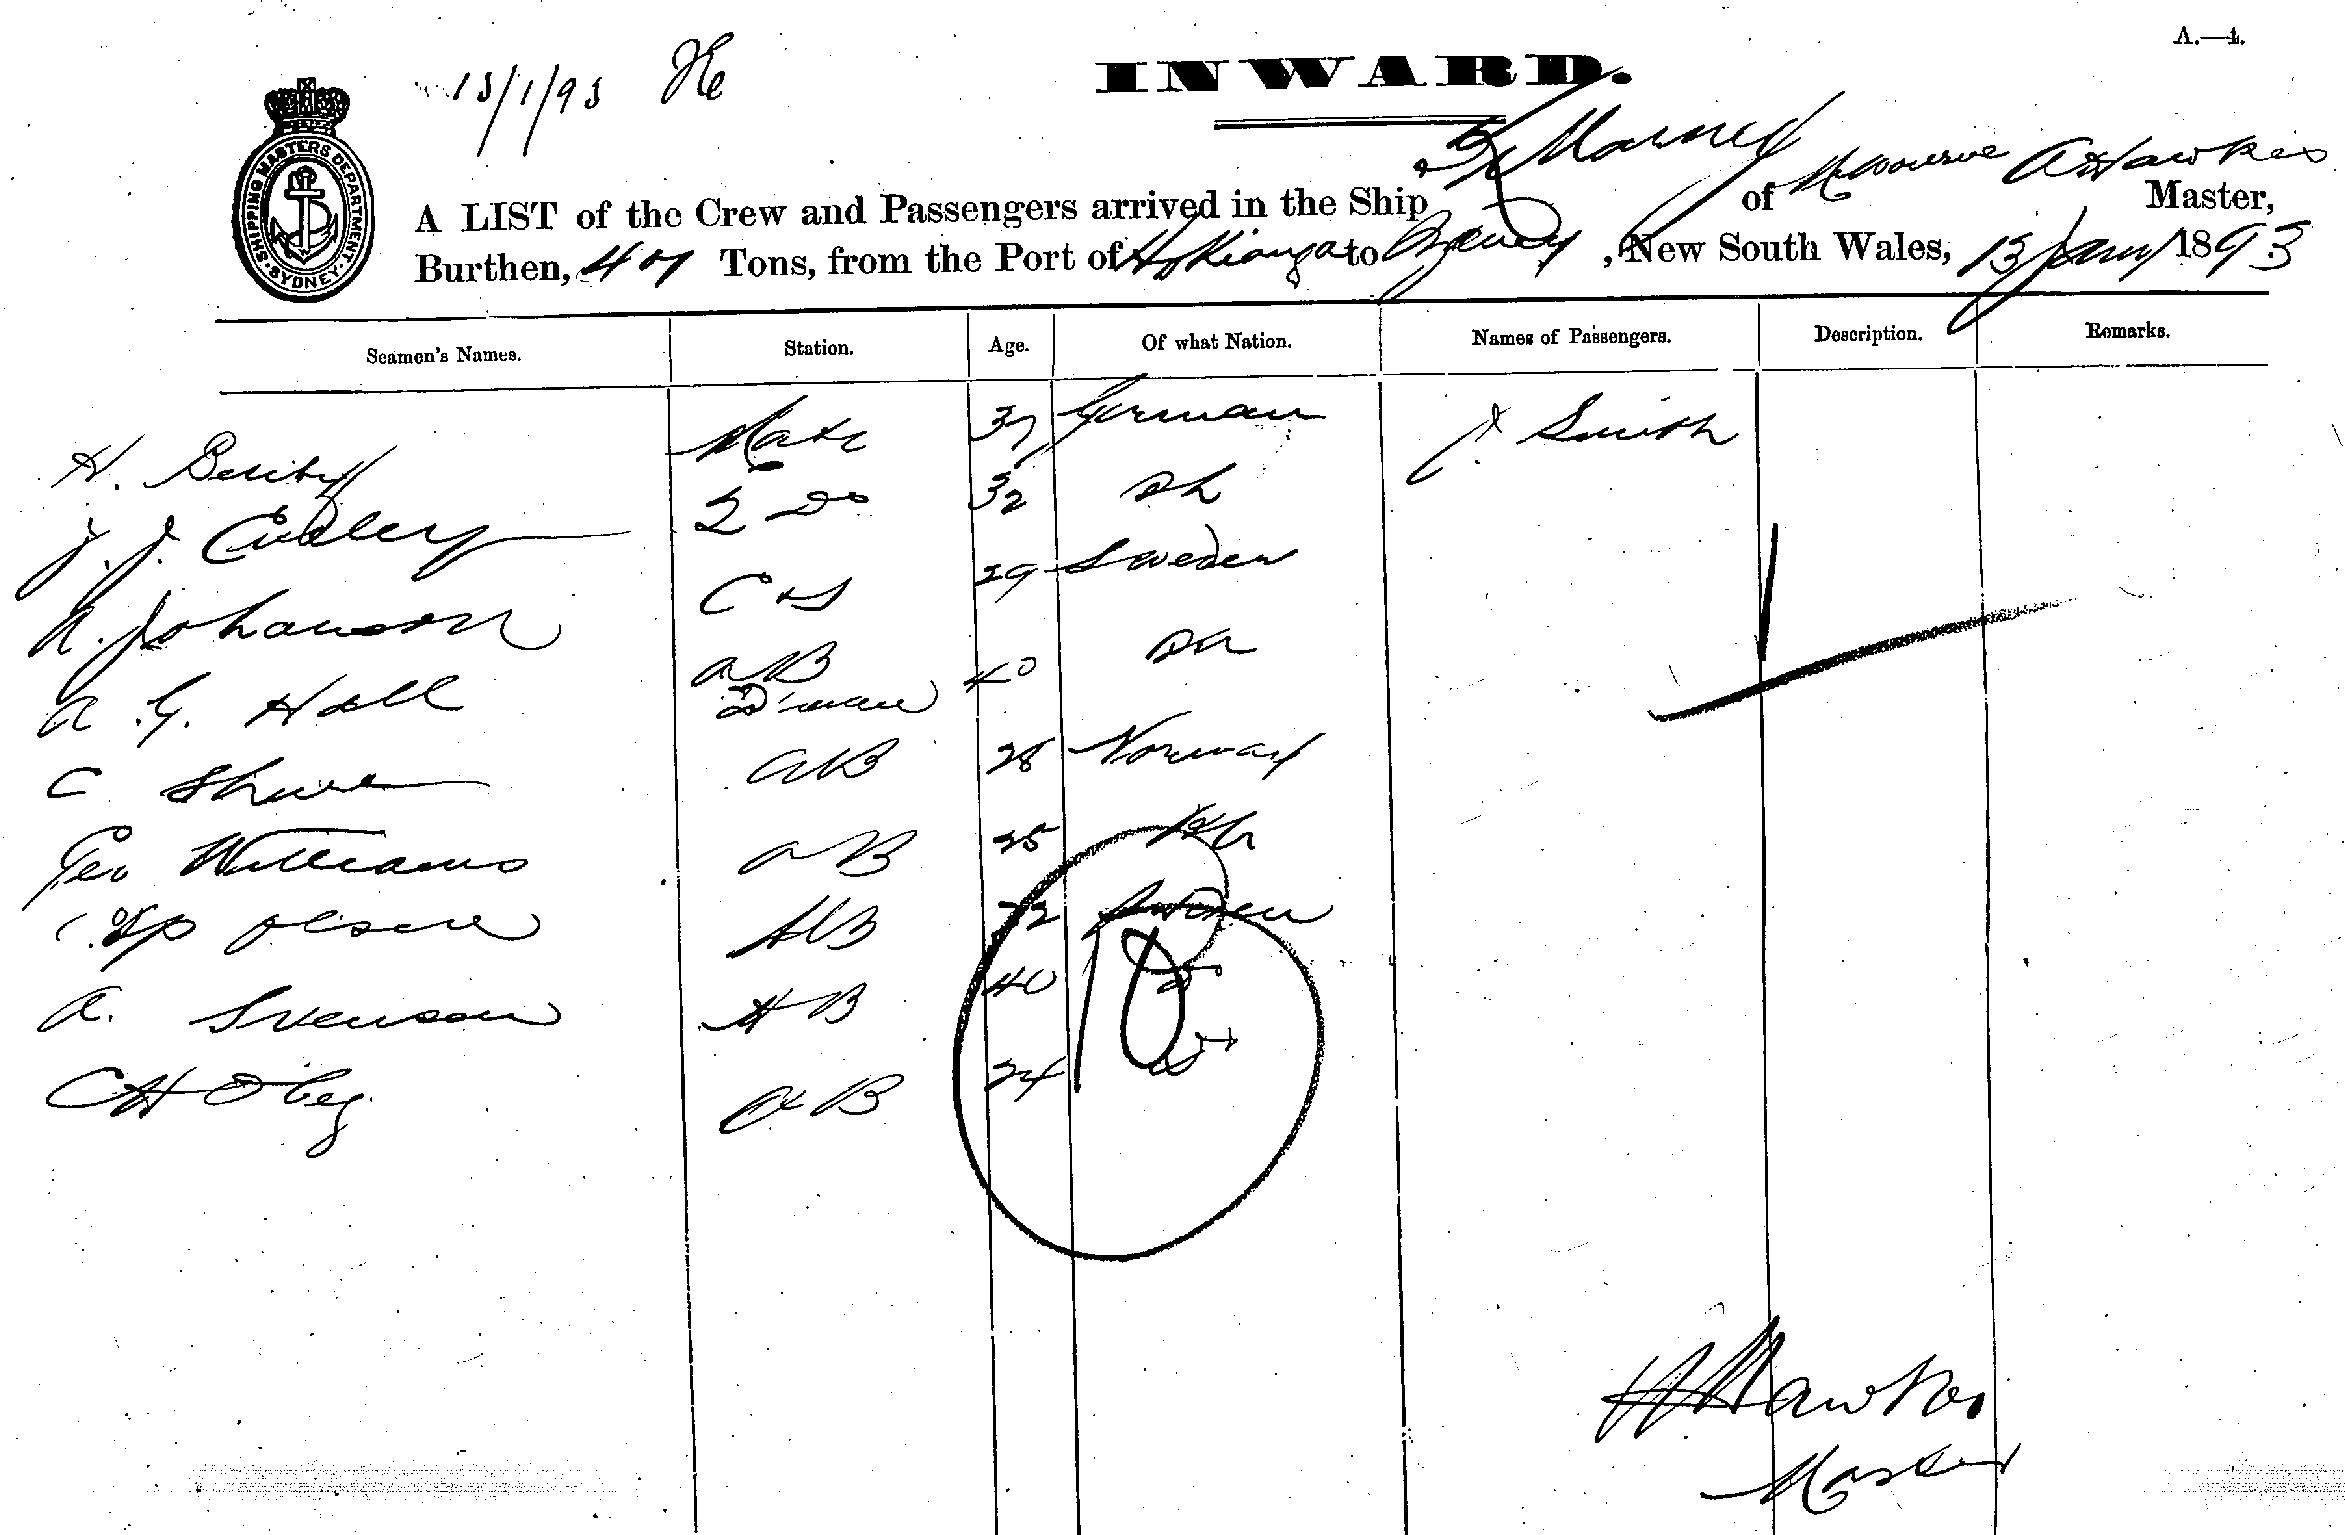 A.—4.
13/1/93
INWARD.
SHIPPING MASTERS DEPARTMENT. SYDNEY.
A LIST of the Crew and Passengers arrived in the Ship of A Hawkes Master,
Burthen, 407 Tons, from the Port of Hokianga to Sydney, New South Wales, 13 Jany 1893
Seamen's Names. Station. Age. Of what Nation. Names of Passengers. Description. Remarks.
H. Mate 37 German J. Smith
J. J. 2 Do 32
A. Johanson C & S 29 Sweden
A. G. Hall AB 40
C AB 28 Norway
Geo Williams AB 25
P Olsen AB Sweden
A. Svenson AB 40
C H Oberg AB 24
10
A Hawkes
Master